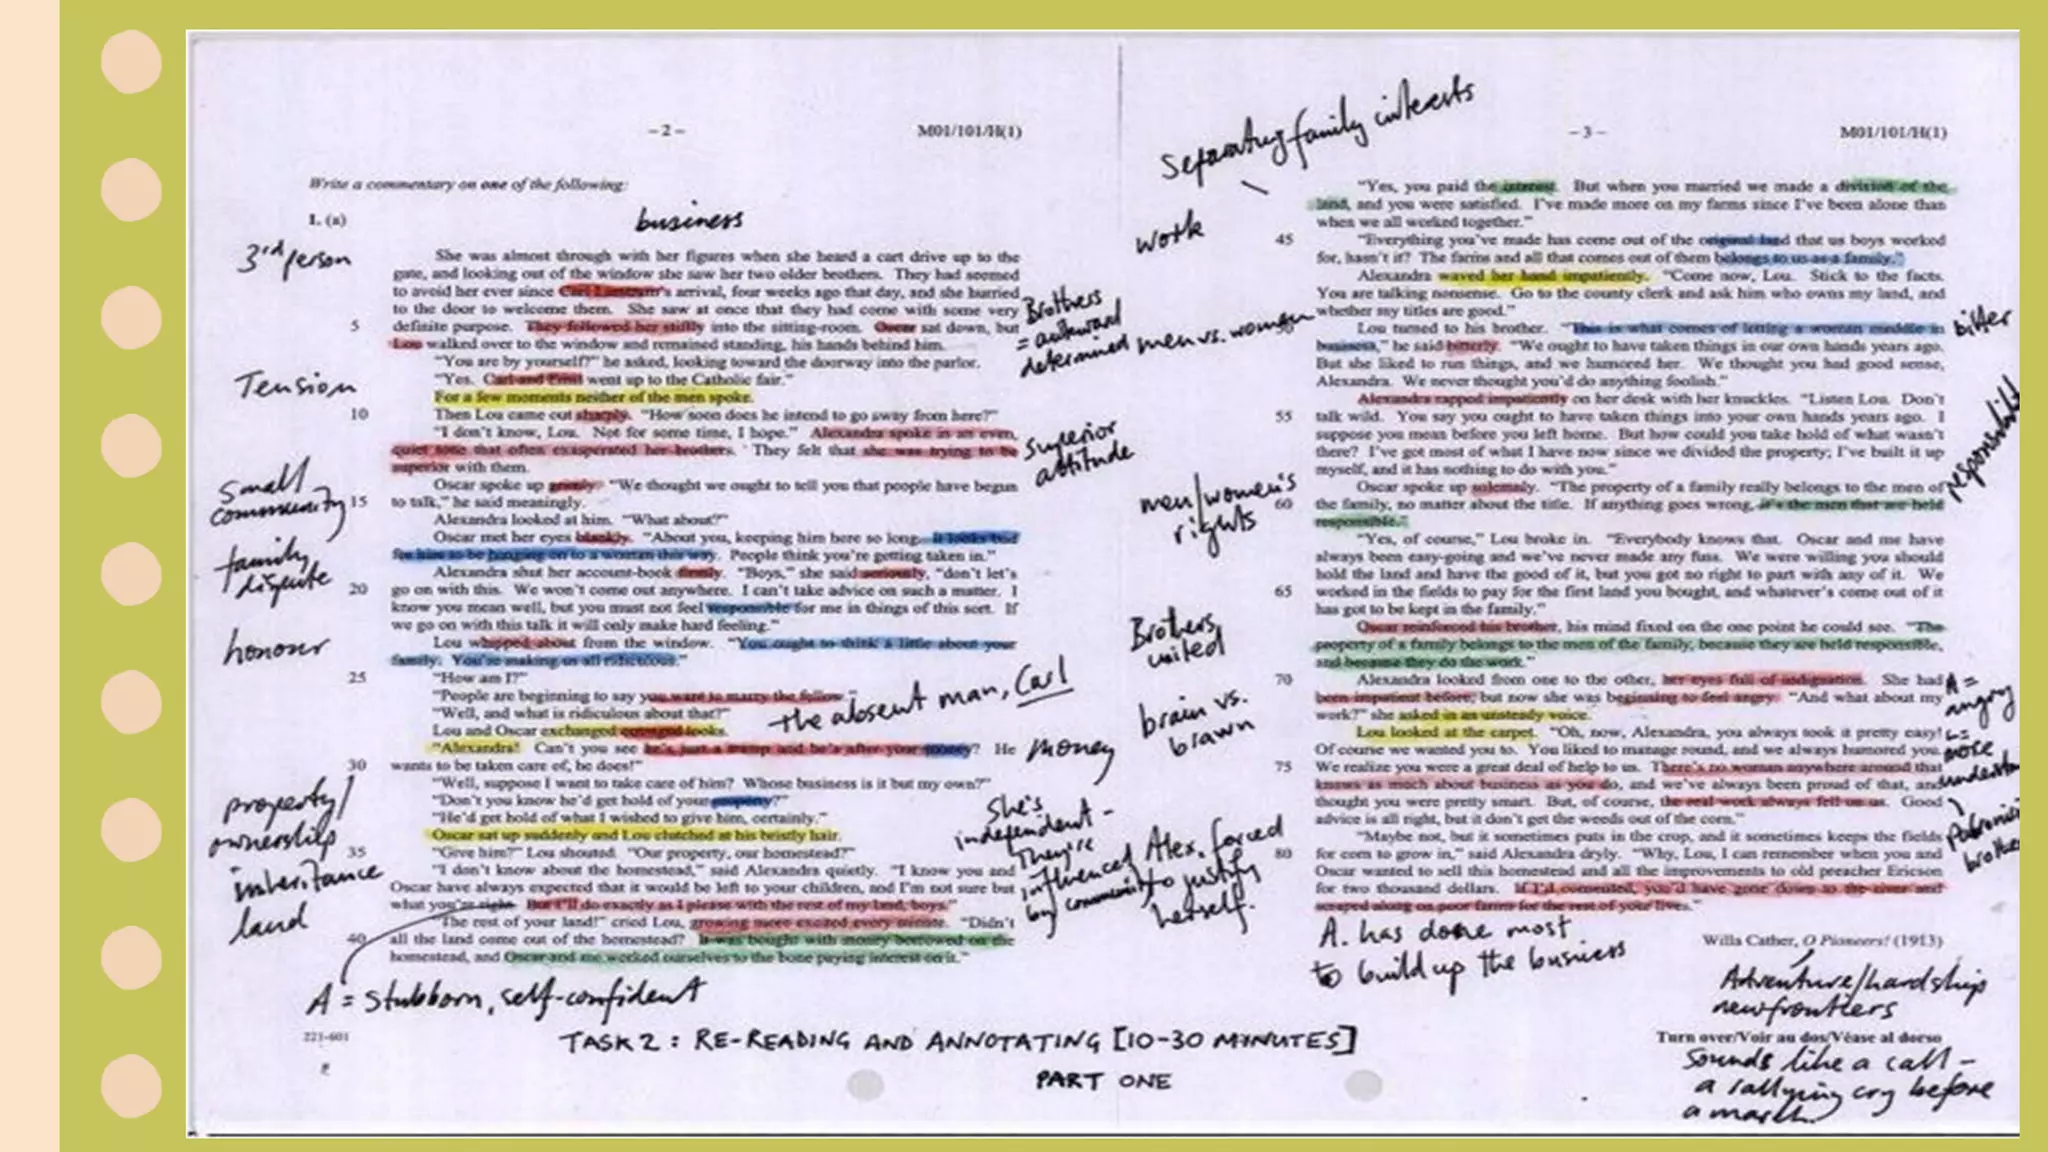 - 2 -
M01/101/H(1)
Write a commentary on one of the following:
1. (a)
business
3rd person
She was almost through with her figures when she heard a cart drive up to the
gate, and looking out of the window she saw her two older brothers. They had seemed
to avoid her ever since Carl Linstrum's arrival, four weeks ago that day, and she hurried
to the door to welcome them. She saw at once that they had come with some very
5 definite purpose. They followed her stiffly into the sitting-room. Oscar sat down, but
Lou walked over to the window and remained standing, his hands behind him.
"You are by yourself?" he asked, looking toward the doorway into the parlor.
"Yes. Carl and Emil went up to the Catholic fair."
For a few moments neither of the men spoke.
10 Then Lou came out sharply. "How soon does he intend to go away from here?"
"I don't know, Lou. Not for some time, I hope." Alexandra spoke in an even,
quiet tone that often exasperated her brothers. They felt that she was trying to be
superior with them.
Oscar spoke up grimly. "We thought we ought to tell you that people have begun
15 to talk," he said meaningly.
Alexandra looked at him. "What about?"
Oscar met her eyes blankly. "About you, keeping him here so long. It looks bad
for him to be hanging on to a woman this way. People think you're getting taken in."
Alexandra shut her account-book firmly. "Boys," she said seriously, "don't let's
20 go on with this. We won't come out anywhere. I can't take advice on such a matter. I
know you mean well, but you must not feel responsible for me in things of this sort. If
we go on with this talk it will only make hard feeling."
Lou whipped about from the window. "You ought to think a little about your
family. You're making us all ridiculous."
25 "How am I?"
"People are beginning to say you want to marry the fellow."
"Well, and what is ridiculous about that?"
Lou and Oscar exchanged outraged looks.
"Alexandra! Can't you see he's just a tramp and he's after your money? He
30 wants to be taken care of, he does!"
"Well, suppose I want to take care of him? Whose business is it but my own?"
"Don't you know he'd get hold of your property?"
"He'd get hold of what I wished to give him, certainly."
Oscar sat up suddenly and Lou clutched at his bristly hair.
35 "Give him?" Lou shouted. "Our property, our homestead?"
"I don't know about the homestead," said Alexandra quietly. "I know you and
Oscar have always expected that it would be left to your children, and I'm not sure but
what you're right. But I'll do exactly as I please with the rest of my land, boys."
"The rest of your land!" cried Lou, growing more excited every minute. "Didn't
40 all the land come out of the homestead? It was bought with money borrowed on the
homestead, and Oscar and me worked ourselves to the bone paying interest on it."
Tension
small
community
family
dispute
honour
property/
ownership
inheritance
land
Brothers
= awkward
determined
superior
attitude
the absent man, Carl
money
She's
independent -
They're
influenced
by community
A = stubborn, self-confident
221-601
- 3 -
M01/101/H(1)
Separating family interests
"Yes, you paid the interest. But when you married we made a division of the
land, and you were satisfied. I've made more on my farms since I've been alone than
when we all worked together."
45 "Everything you've made has come out of the original land that us boys worked
for, hasn't it? The farms and all that comes out of them belongs to us as a family."
Alexandra waved her hand impatiently. "Come now, Lou. Stick to the facts.
You are talking nonsense. Go to the county clerk and ask him who owns my land, and
whether my titles are good."
Lou turned to his brother. "This is what comes of letting a woman meddle in
business," he said bitterly. "We ought to have taken things in our own hands years ago.
But she liked to run things, and we humored her. We thought you had good sense,
Alexandra. We never thought you'd do anything foolish."
Alexandra rapped impatiently on her desk with her knuckles. "Listen Lou. Don't
55 talk wild. You say you ought to have taken things into your own hands years ago. I
suppose you mean before you left home. But how could you take hold of what wasn't
there? I've got most of what I have now since we divided the property; I've built it up
myself, and it has nothing to do with you."
Oscar spoke up solemnly. "The property of a family really belongs to the men of
60 the family, no matter about the title. If anything goes wrong, it's the men that are held
responsible."
"Yes, of course," Lou broke in. "Everybody knows that. Oscar and me have
always been easy-going and we've never made any fuss. We were willing you should
hold the land and have the good of it, but you got no right to part with any of it. We
65 worked in the fields to pay for the first land you bought, and whatever's come out of it
has got to be kept in the family."
Oscar reinforced his brother, his mind fixed on the one point he could see. "The
property of a family belongs to the men of the family, because they are held responsible,
and because they do the work."
70 Alexandra looked from one to the other, her eyes full of indignation. She had
been impatient before, but now she was beginning to feel angry. "And what about my
work?" she asked in an unsteady voice.
Lou looked at the carpet. "Oh, now, Alexandra, you always took it pretty easy!
Of course we wanted you to. You liked to manage round, and we always humored you.
75 We realize you were a great deal of help to us. There's no woman anywhere around that
knows as much about business as you do, and we've always been proud of that, and
thought you were pretty smart. But, of course, the real work always fell on us. Good
advice is all right, but it don't get the weeds out of the corn."
"Maybe not, but it sometimes puts in the crop, and it sometimes keeps the fields
80 for corn to grow in," said Alexandra dryly. "Why, Lou, I can remember when you and
Oscar wanted to sell this homestead and all the improvements to old preacher Ericson
for two thousand dollars. If I'd consented, you'd have gone down to the river and
scraped along on poor farms for the rest of your lives."
work
men vs. women
men/women's
rights
Brothers
united
brain vs.
brawn
Alex. forced
to justify
herself.
bitter
responsibility
A =
angry
L =
more
A. has done most
to build up the business
Willa Cather, O Pioneers! (1913)
Adventure/hardship
new frontiers
Turn over/Voir au dos/Véase al dorso
Sounds like a call -
a rallying cry before
a march
TASK 2 : RE-READING AND ANNOTATING [10-30 MINUTES]
PART ONE